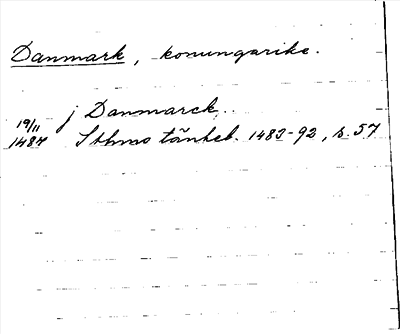 Danmark, konungarike.
19/11 j Danmarck.
1487 Sthmo tänkeb. 1483-92, s. 57